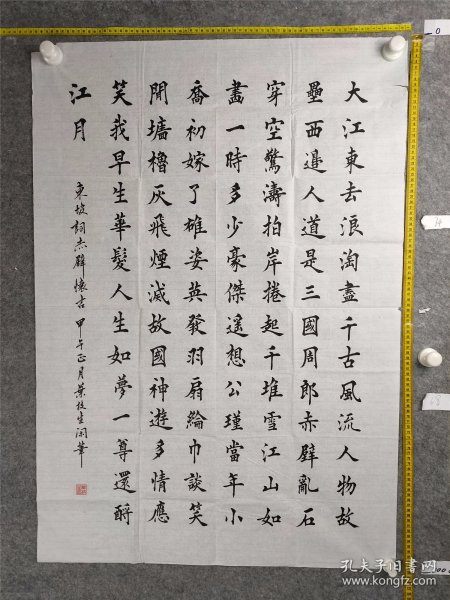 大江東去浪淘盡千古風流人物故
壘西邊人道是三國周郎赤壁亂石
穿空驚濤拍岸捲起千堆雪江山如
畫一時多少豪傑遙想公瑾當年小
喬初嫁了雄姿英發羽扇綸巾談笑
間墻櫓灰飛煙滅故國神遊多情應
笑我早生華髮人生如夢一尊還酹
江月
東坡詞赤壁懷古 甲午正月葉生閑筆
孔夫子旧书网
www.kongfz.com